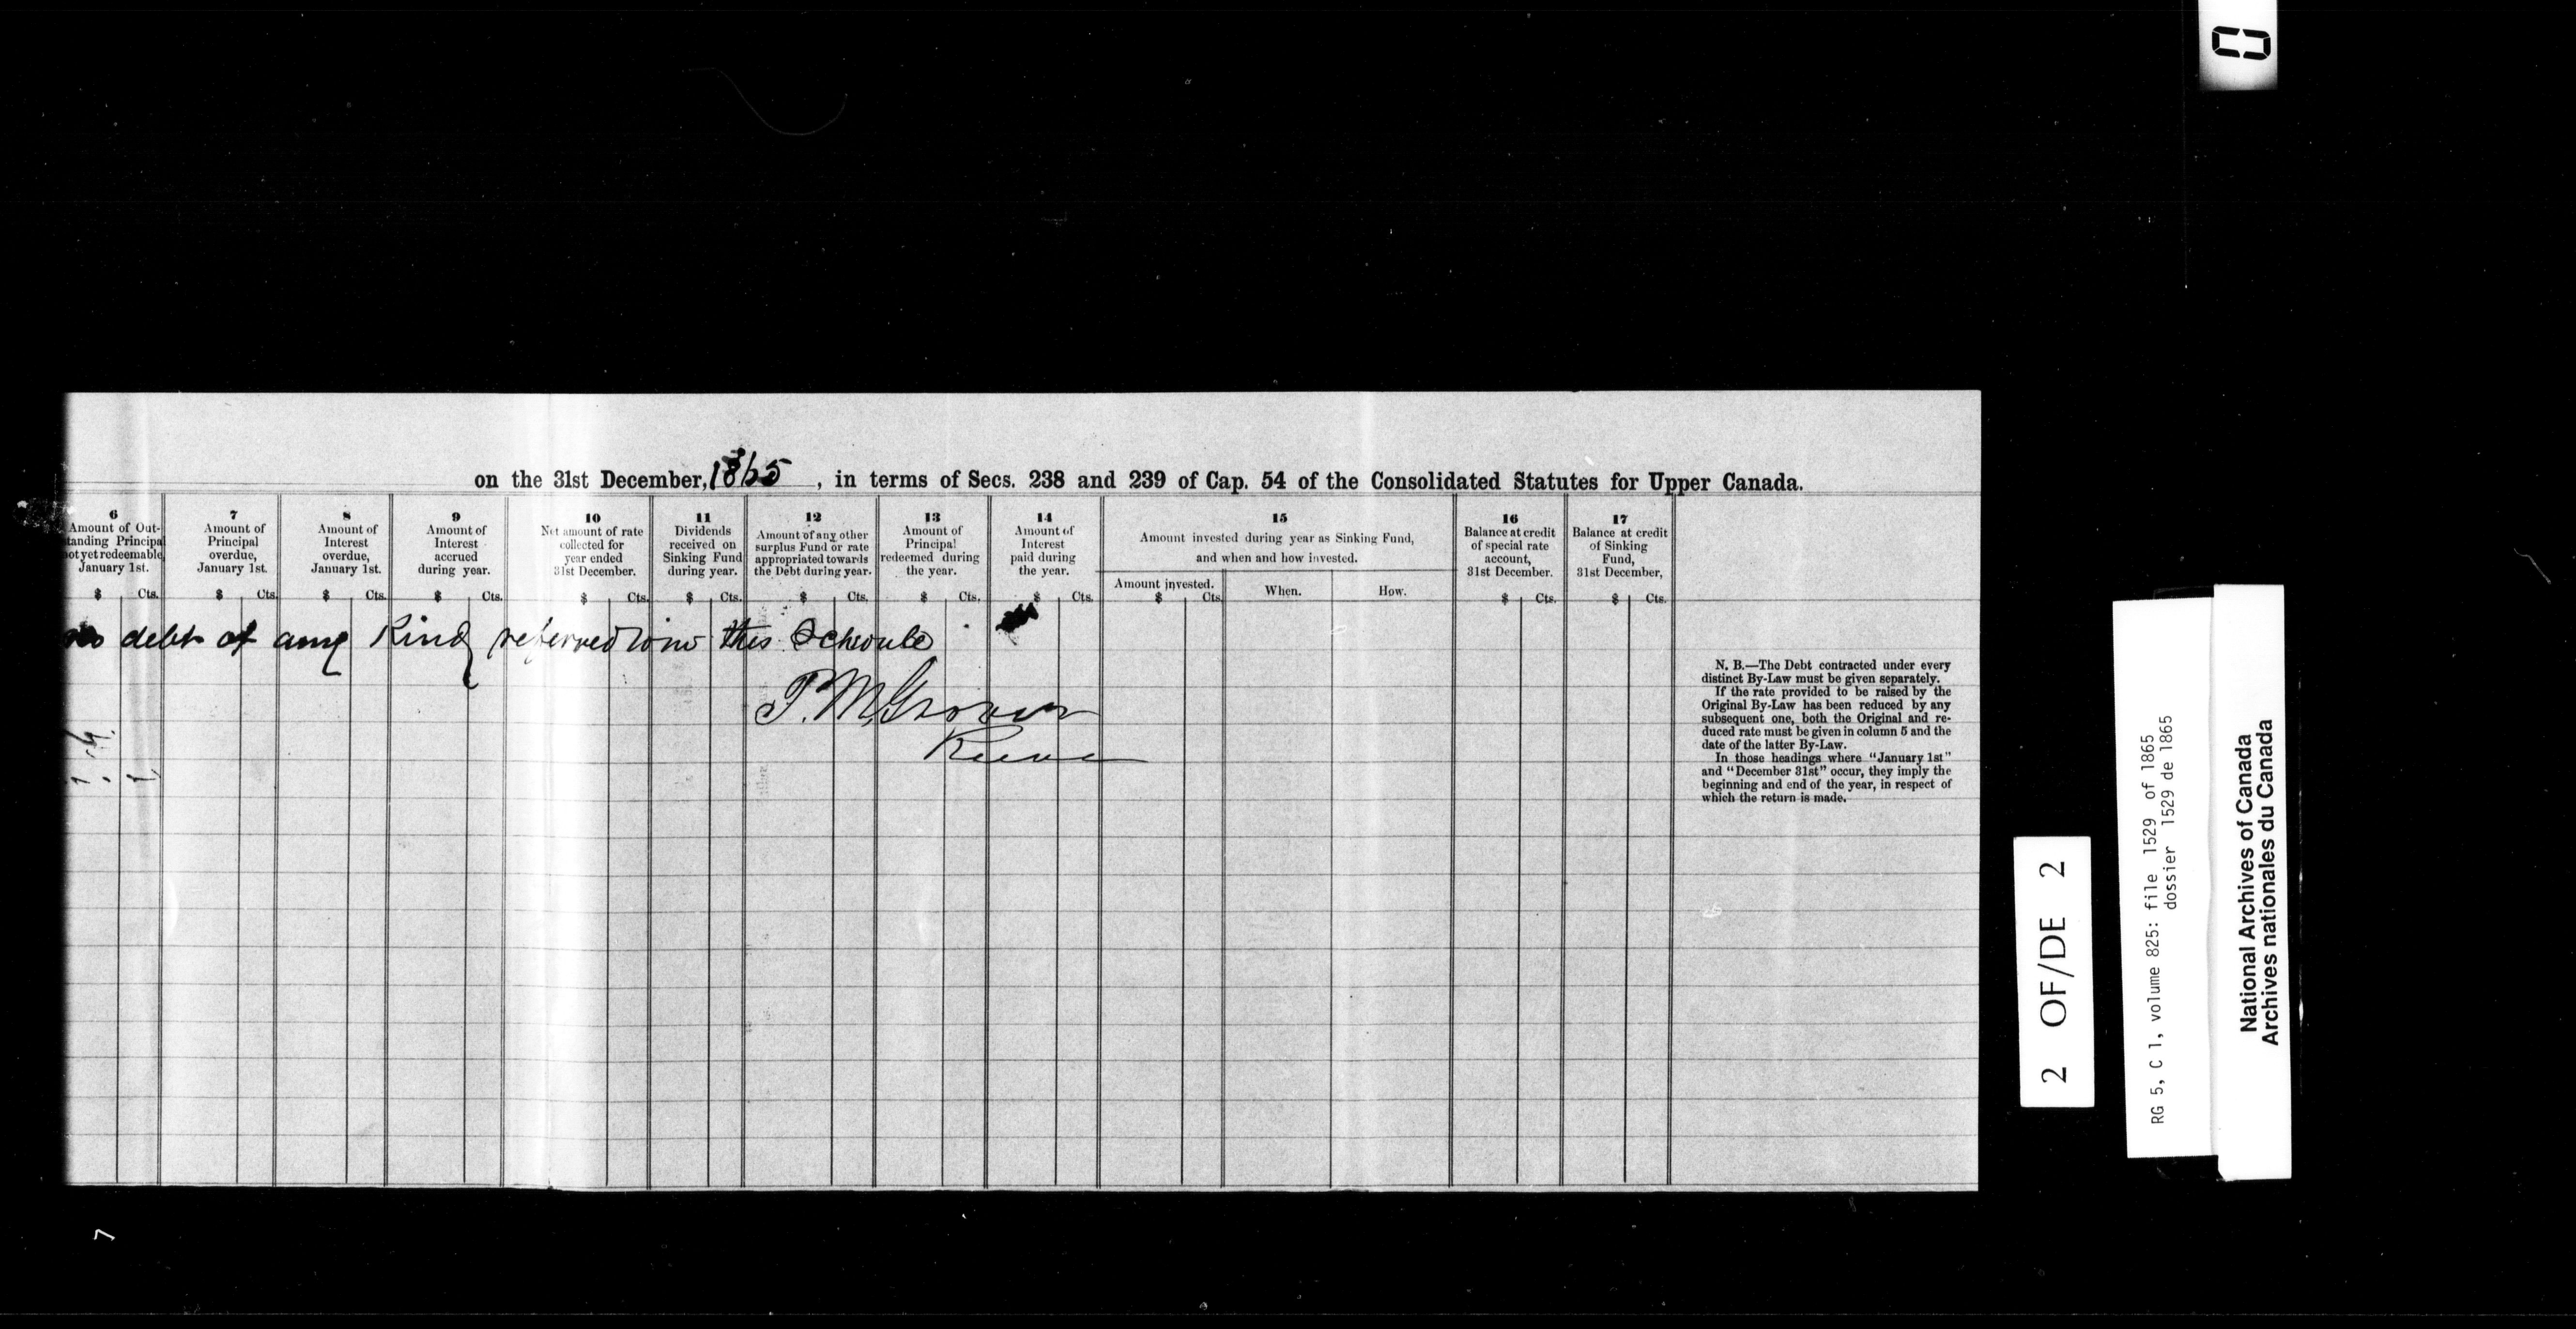 on the 31st December, 1865, in terms of Secs. 238 and 239 of Cap. 54 of the Consolidated Statutes for Upper Canada.
6
Amount of Out-
tanding Principal
not yet redeemable,
January 1st.
$ Cts.
7
Amount of
Principal
overdue,
January 1st.
$ Cts.
8
Amount of
Interest
overdue,
January 1st.
$ Cts.
9
Amount of
Interest
accrued
during year.
$ Cts.
10
Net amount of rate
collected for
year ended
31st December.
$ Cts.
11
Dividends
received on
Sinking Fund
during year.
$ Cts.
12
Amount of any other
surplus Fund or rate
appropriated towards
the Debt during year.
$ Cts.
13
Amount of
Principal
redeemed during
the year.
$ Cts.
14
Amount of
Interest
paid during
the year.
$ Cts.
15
Amount invested during year as Sinking Fund,
and when and how invested.
Amount invested.
$ Cts.
When.
How.
16
Balance at credit
of special rate
account,
31st December.
$ Cts.
17
Balance at credit
of Sinking
Fund,
31st December,
$ Cts.
no debt of any Kind referred to in this Schedule
P. M. Grover
Reeve
N. B.—The Debt contracted under every
distinct By-Law must be given separately.
If the rate provided to be raised by the
Original By-Law has been reduced by any
subsequent one, both the Original and re-
duced rate must be given in column 5 and the
date of the latter By-Law.
In those headings where "January 1st"
and "December 31st" occur, they imply the
beginning and end of the year, in respect of
which the return is made.
2 OF/DE 2
RG 5, C 1, volume 825: file 1529 of 1865
dossier 1529 de 1865
National Archives of Canada
Archives nationales du Canada